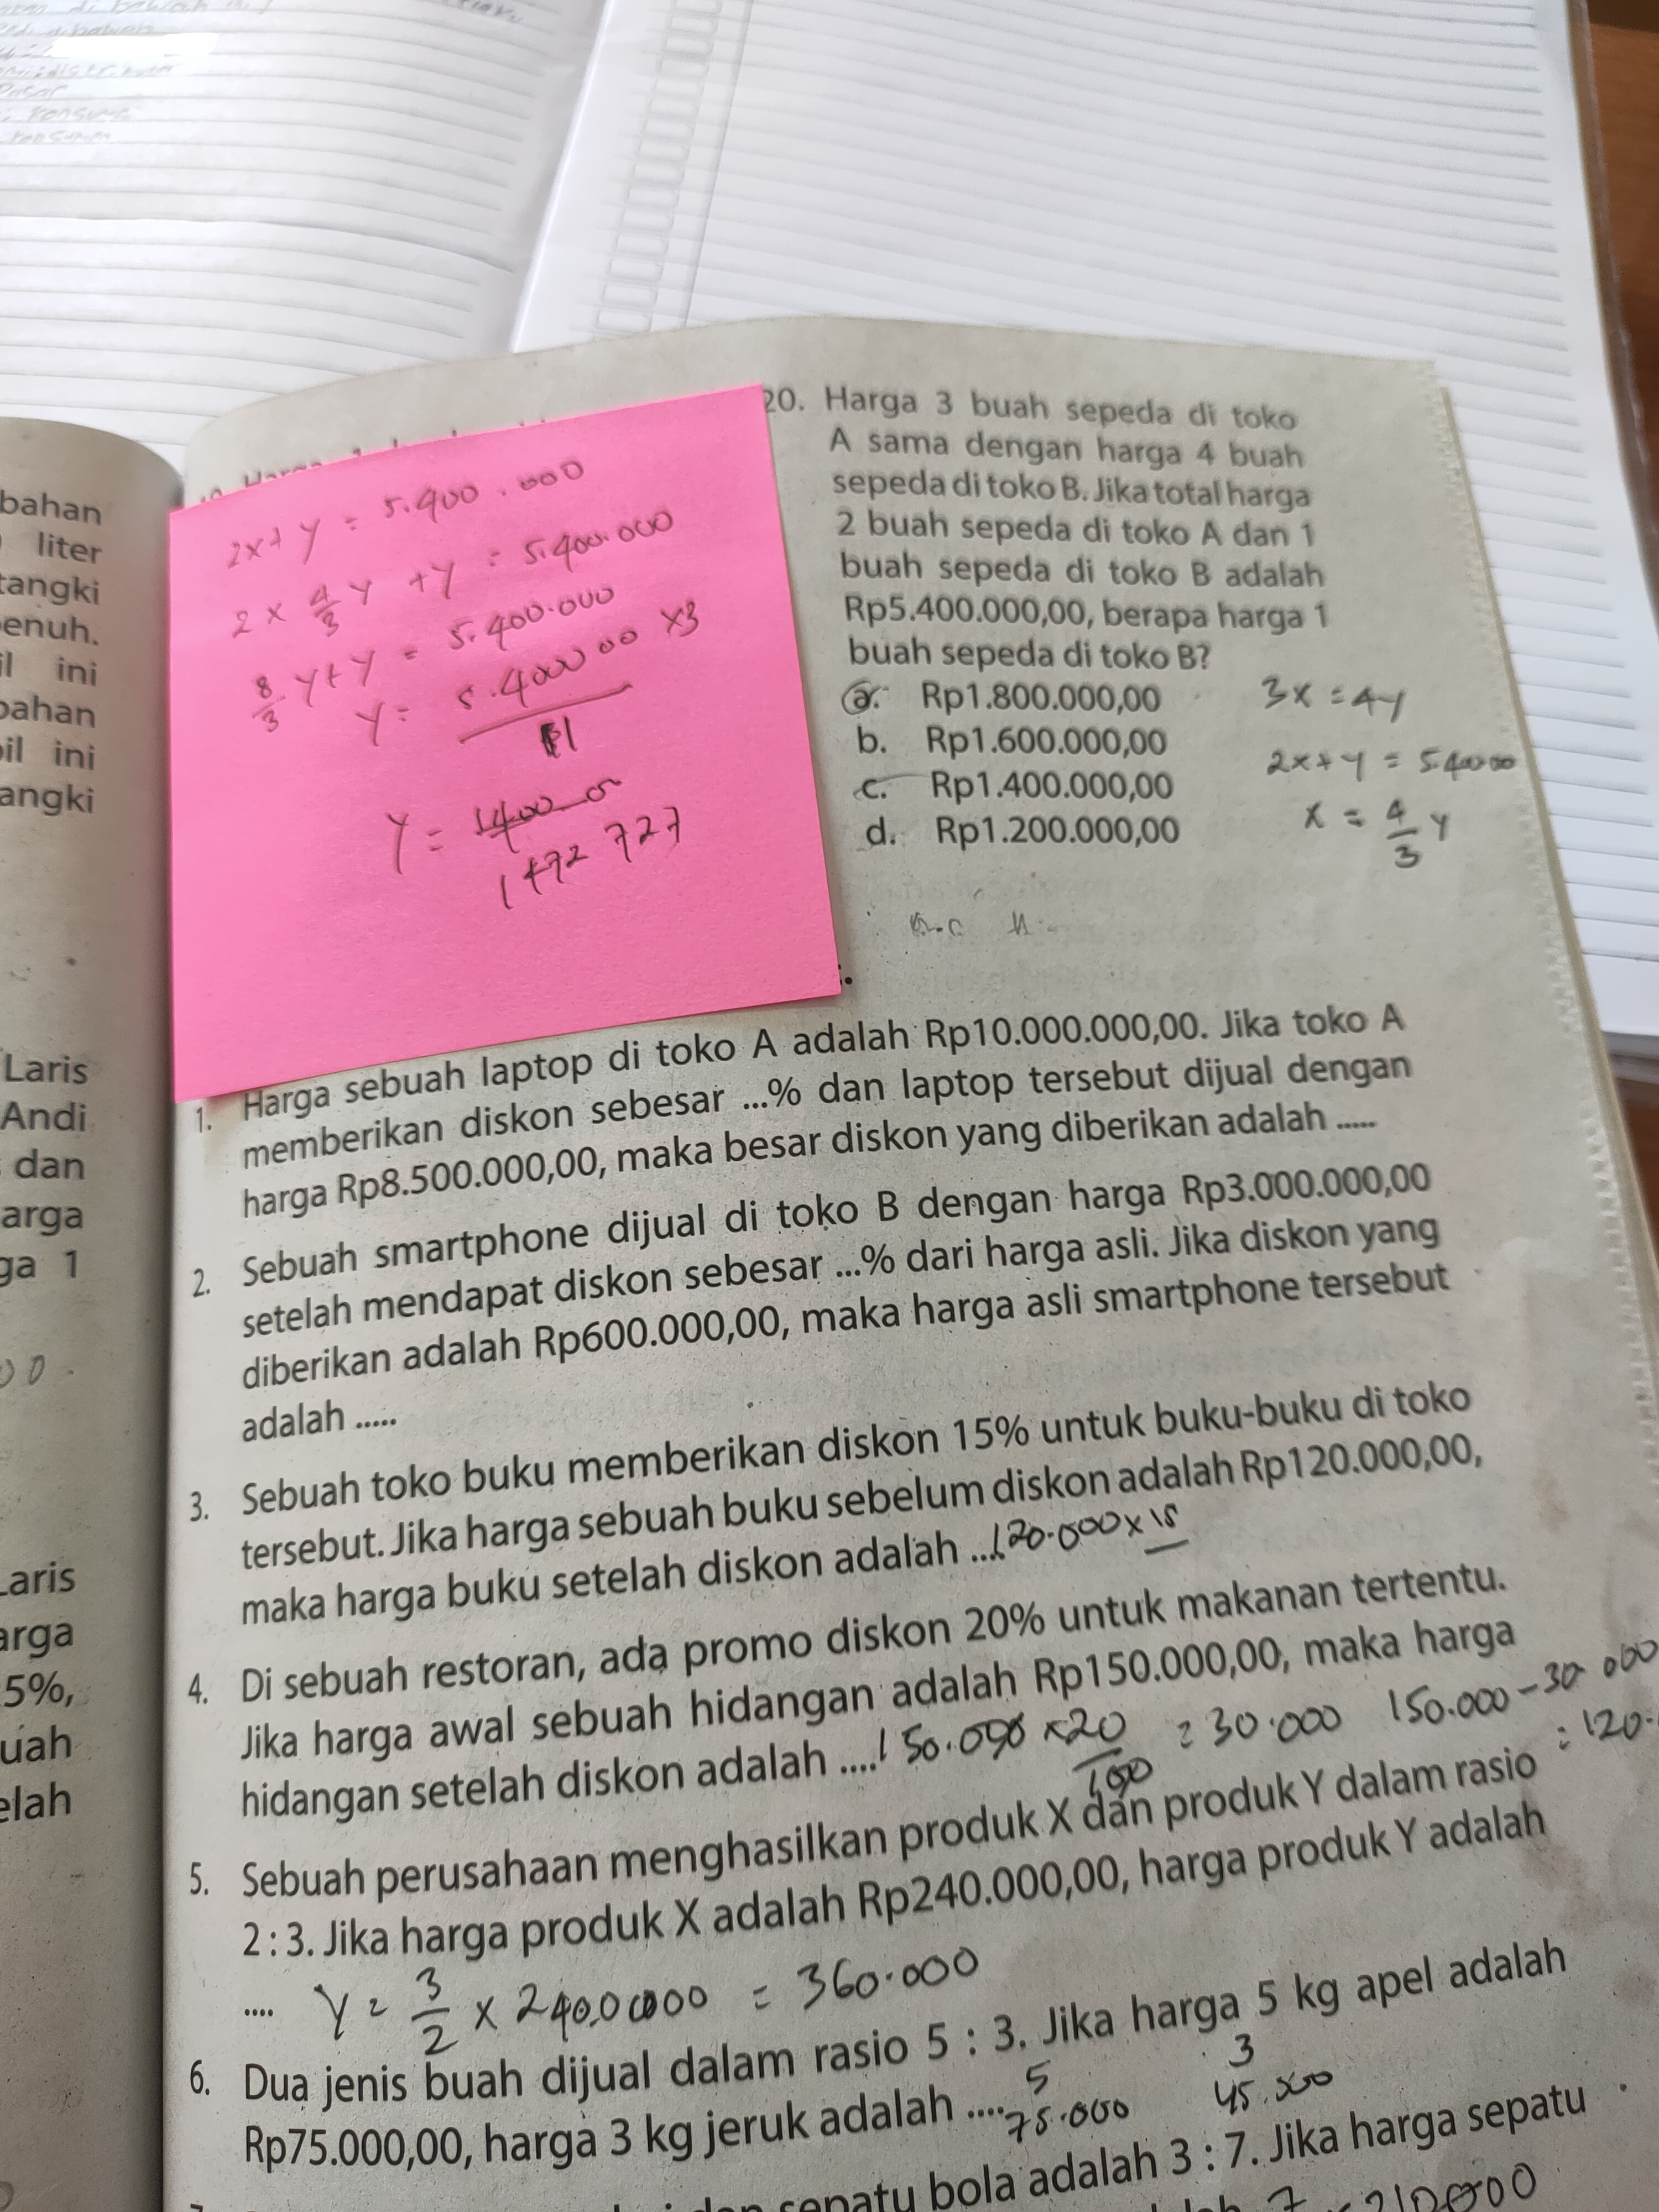 bahan
liter
tangki
penuh.
il ini
bahan
il ini
angki
Laris
Andi
dan
arga
ga 1
Laris
arga
5%,
uah
elah
2x+y = 5.400.000
2 x 4/3 y + y = 5.400.000
8/3 y+y = 5.400.000
y = 5.4000 00 x3
11
y =
1472 727
20. Harga 3 buah sepeda di toko
A sama dengan harga 4 buah
sepeda di toko B. Jika total harga
2 buah sepeda di toko A dan 1
buah sepeda di toko B adalah
Rp5.400.000,00, berapa harga 1
buah sepeda di toko B?
a. Rp1.800.000,00
b. Rp1.600.000,00
c. Rp1.400.000,00
d. Rp1.200.000,00
3x = 4y
2x+y = 540000
x = 4/3 y
1. Harga sebuah laptop di toko A adalah Rp10.000.000,00. Jika toko A
memberikan diskon sebesar ...% dan laptop tersebut dijual dengan
harga Rp8.500.000,00, maka besar diskon yang diberikan adalah .....
2. Sebuah smartphone dijual di toko B dengan harga Rp3.000.000,00
setelah mendapat diskon sebesar ...% dari harga asli. Jika diskon yang
diberikan adalah Rp600.000,00, maka harga asli smartphone tersebut
adalah .....
3. Sebuah toko buku memberikan diskon 15% untuk buku-buku di toko
tersebut. Jika harga sebuah buku sebelum diskon adalah Rp120.000,00,
maka harga buku setelah diskon adalah .... 120.000 x 15
4. Di sebuah restoran, ada promo diskon 20% untuk makanan tertentu.
Jika harga awal sebuah hidangan adalah Rp150.000,00, maka harga
hidangan setelah diskon adalah .... 150.000 x 20/100 = 30.000 150.000 - 30 000
= 120.
5. Sebuah perusahaan menghasilkan produk X dan produk Y dalam rasio
2 : 3. Jika harga produk X adalah Rp240.000,00, harga produk Y adalah
.... Y = 3/2 x 240.0000 = 360.000
6. Dua jenis buah dijual dalam rasio 5 : 3. Jika harga 5 kg apel adalah
Rp75.000,00, harga 3 kg jeruk adalah ....
5 3
75.000 45.000
sepatu bola adalah 3 : 7. Jika harga sepatu